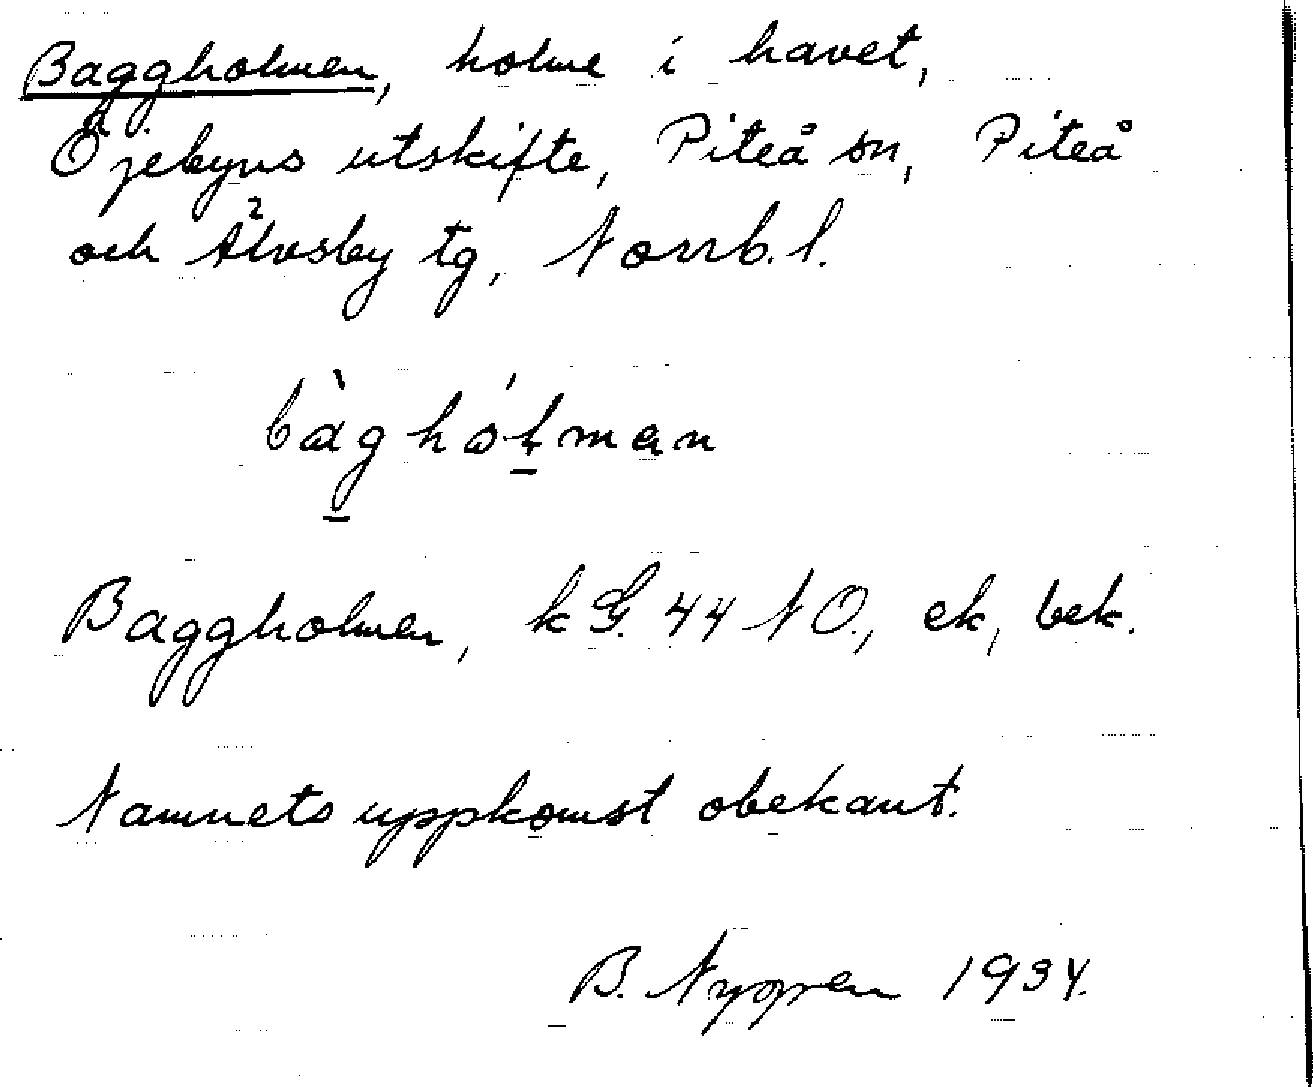 Baggholmen, holme i havet,
Öjebyns utskifte, Piteå sn, Piteå
och Älvsby tg, Norrb. l.
bàghólman
Baggholmen, k G. 44 N O., ek, bek.
Namnets uppkomst obekant.
B. 1934.